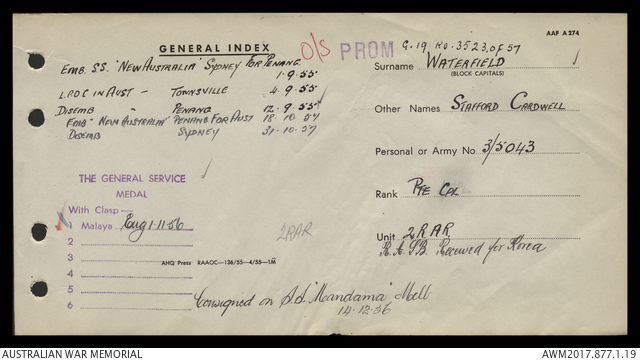 AAF A 274
GENERAL INDEX
O/S PROM G.19. RO. 3523 OF 57
EMB. S.S. "NEW AUSTRALIA" SYDNEY FOR PENANG
1.9.55
L.P.O.C IN AUST - TOWNSVILLE 4.9.55
DISEMB " PENANG 12.9.55
EMB "NEW AUSTRALIA" PENANG FOR AUST 18 10 57
DISEMB SYDNEY 31.10.57
Surname WATERFIELD
(BLOCK CAPITALS)
Other Names STAFFORD CARDWELL
Personal or Army No 3/5043
Rank PTE CPL
Unit 2RAR
R.A.S.B. Received for Korea
THE GENERAL SERVICE
MEDAL
With Clasp—
1 Malaya Eng 1.11.56
2
3
4
5
6
2RAR
AHQ Press RAAOC—136/55—4/55—1M
Consigned on S.S. "Mandama" Melb
14.12.56
AUSTRALIAN WAR MEMORIAL
AWM2017.877.1.19